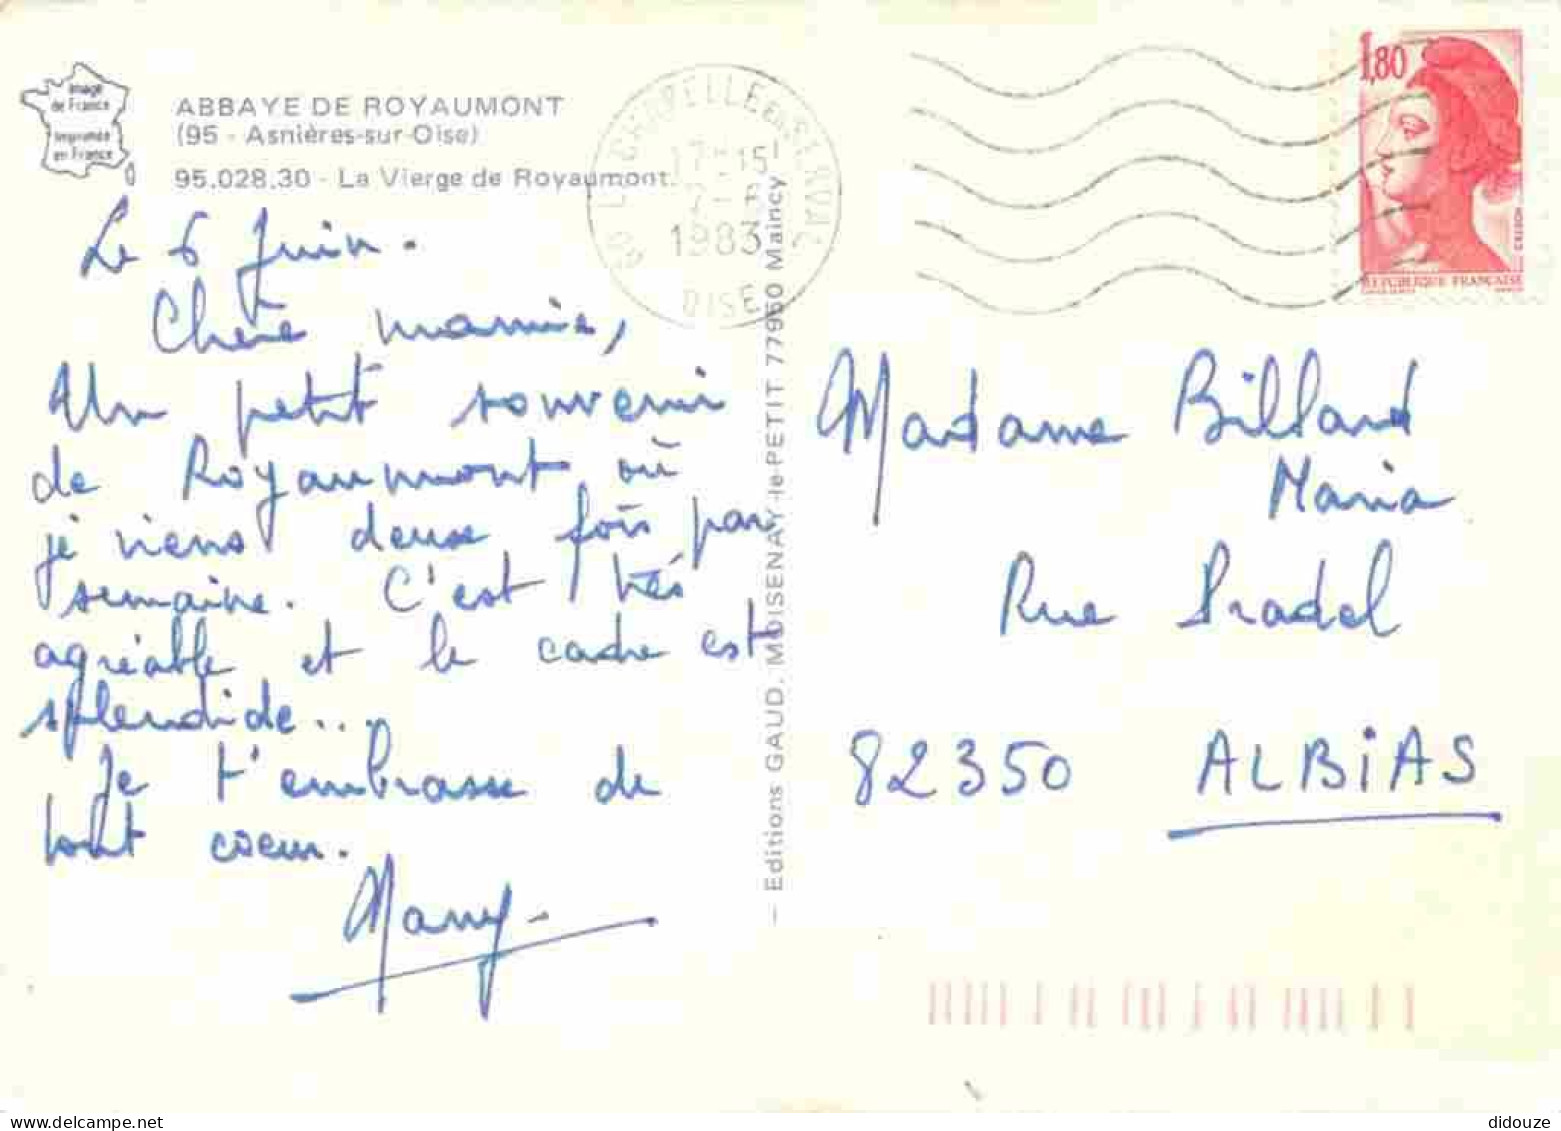 Image
de France
Imprimée
en France
ABBAYE DE ROYAUMONT
(95 - Asnières-sur-Oise)
95.028.30 - La Vierge de Royaumont.
Le 6 Juin.
Chère mamie,
Un petit souvenir
de Royaumont où
je viens deux fois par
semaine. C'est très
agréable et le cadre est
splendide...
Je t'embrasse de
tout coeur.
Many.
— Editions GAUD, MOISENAY-le-PETIT 77950 Maincy
60 LA CHAPELLE en SERVAL
17-15
1983
OISE
1,80
REPUBLIQUE FRANÇAISE
Madame Billard
Maria
Rue Pradel
82350 ALBiAS
didouze